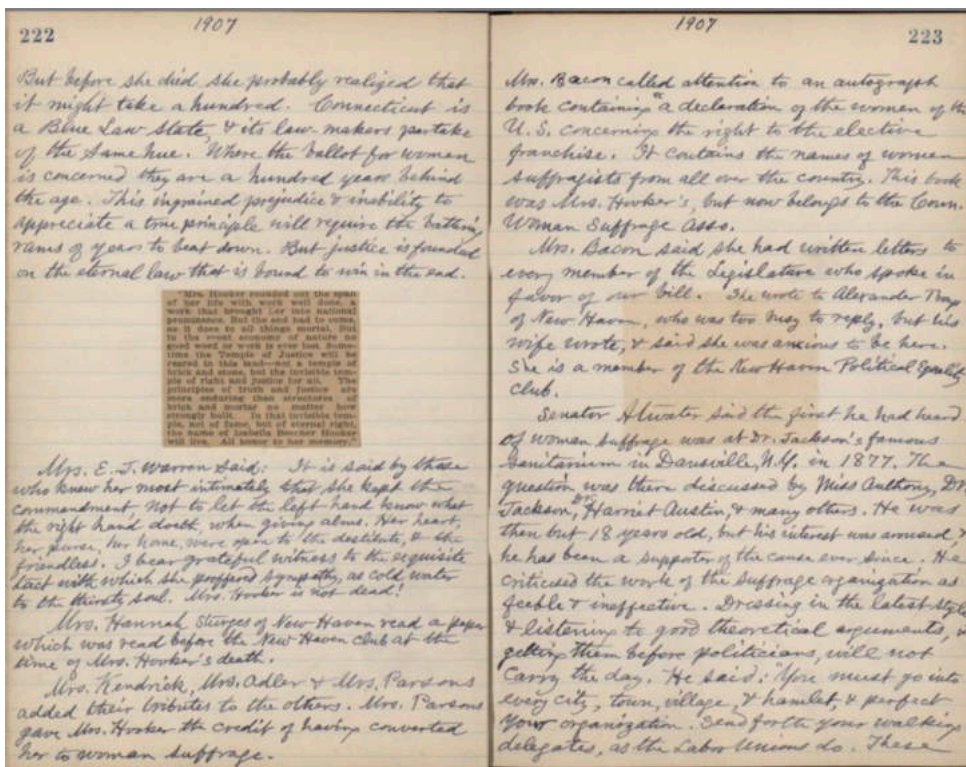 222
1907
But before she died she probably realized that
it might take a hundred. Connecticut is
a Blue Law State, & its law-makers partake
of the same hue. Where the ballot for woman
is concerned they are a hundred years behind
the age. This ingrained prejudice & inability to
appreciate a true principle will require the battering
rams of years to beat down. But justice is founded
on the eternal law that is bound to win in the end.
"Mrs. Hooker rounded out the span
of her life with work well done, a
work that brought her into national
prominence. But the end had to come,
as it does to all things mortal. But
in the great economy of nature no
good word or work is ever lost. Some-
time the Temple of Justice will be
reared in this land—not a temple of
brick and stone, but the invisible tem-
ple of right and justice for all. The
principles of truth and justice are
more enduring than structures of
brick and mortar no matter how
strongly built. In that invisible tem-
ple, not of fame, but of eternal right,
the name of Isabella Beecher Hooker
will live. All honor to her memory."
Mrs. E. J. Warren said: It is said by those
who knew her most intimately that she kept the
commandment, not to let the left hand know what
the right hand doeth, when giving alms. Her heart,
her purse, her home, were open to the destitute, & the
friendless. I bear grateful witness to the exquisite
tact with which she proffered sympathy, as cold water
to the thirsty soul. Mrs. Hooker is not dead!
Mrs. Hannah Sturges of New Haven read a paper
which was read before the New Haven club at the
time of Mrs. Hooker's death.
Mrs. Kendrick, Mrs. Adler & Mrs. Parsons
added their tributes to the others. Mrs. Parsons
gave Mrs. Hooker the credit of having converted
her to woman suffrage.
1907
223
Mrs. Bacon called attention to an autograph
book containing a declaration of the women of the
U.S. concerning the right to the elective
franchise. It contains the names of women
suffragists from all over the country. This book
was Mrs. Hooker's, but now belongs to the Conn.
Woman Suffrage Asso.
Mrs. Bacon said she had written letters to
every member of the Legislature who spoke in
favor of our bill. She wrote to Alexander
of New Haven, who was too busy to reply, but his
wife wrote, & said she was anxious to be here.
She is a member of the New Haven Political Equality
Club.
Senator Atwater said the first he had heard
of woman suffrage was at Dr. Jackson's famous
Sanitarium in Dansville, N.Y. in 1877. The
question was there discussed by Miss Anthony, Dr.
Jackson, Dr. Harriet Austin, & many others. He was
then but 18 years old, but his interest was aroused &
he has been a supporter of the cause ever since. He
criticised the work of the suffrage organization as
feeble & ineffective. Dressing in the latest style
& listening to good theoretical arguments, &
getting them before politicians, will not
carry the day. He said: "You must go into
every city, town, village, & hamlet, & perfect
your organization. Send forth your walking
delegates, as the Labor Unions do. These